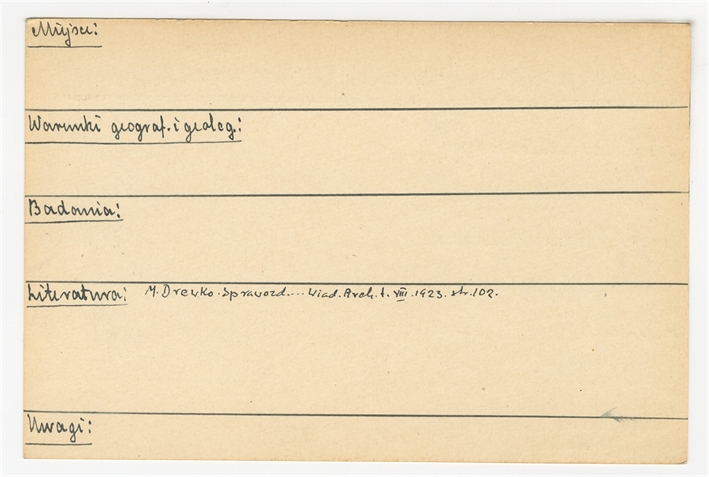 Miejsce:
Warunki geograf. i geolog.:
Badania:
Literatura: M. Drewko. Sprawozd.... Wiad. Arch. t. VIII. 1923. str. 102.
Uwagi: